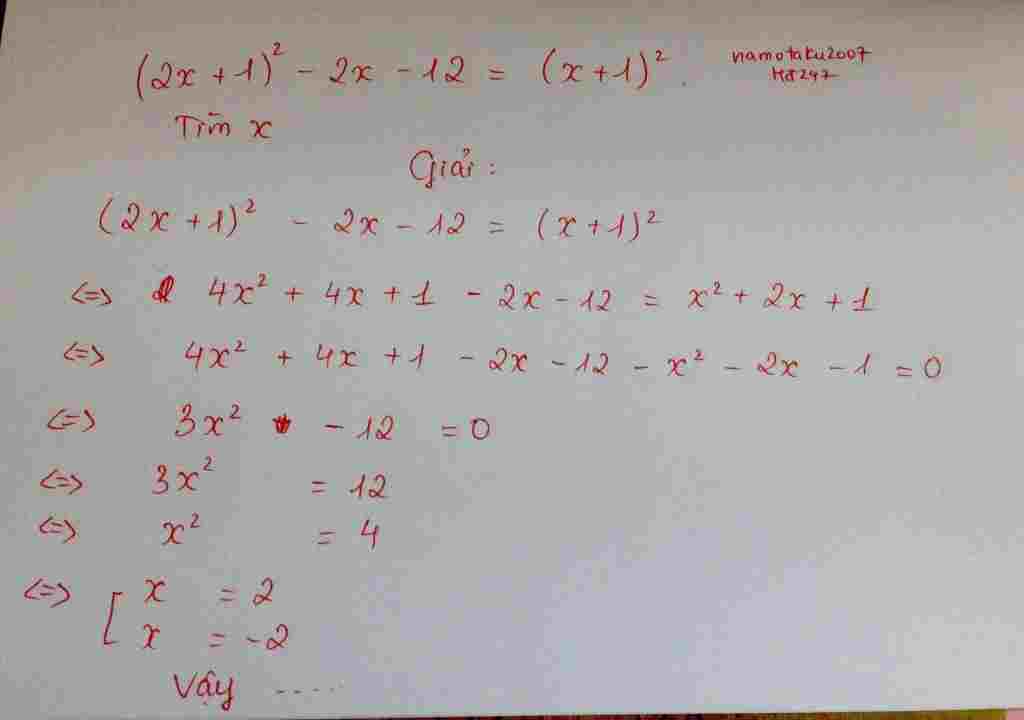 (2x + 1)² - 2x - 12 = (x + 1)².
namotaku2007
H8247
Tìm x
Giải :
(2x + 1)² - 2x - 12 = (x + 1)²
<=> 4x² + 4x + 1 - 2x - 12 = x² + 2x + 1
<=> 4x² + 4x + 1 - 2x - 12 - x² - 2x - 1 = 0
<=> 3x² - 12 = 0
<=> 3x² = 12
<=> x² = 4
<=> [ x = 2
x = -2
Vậy .....